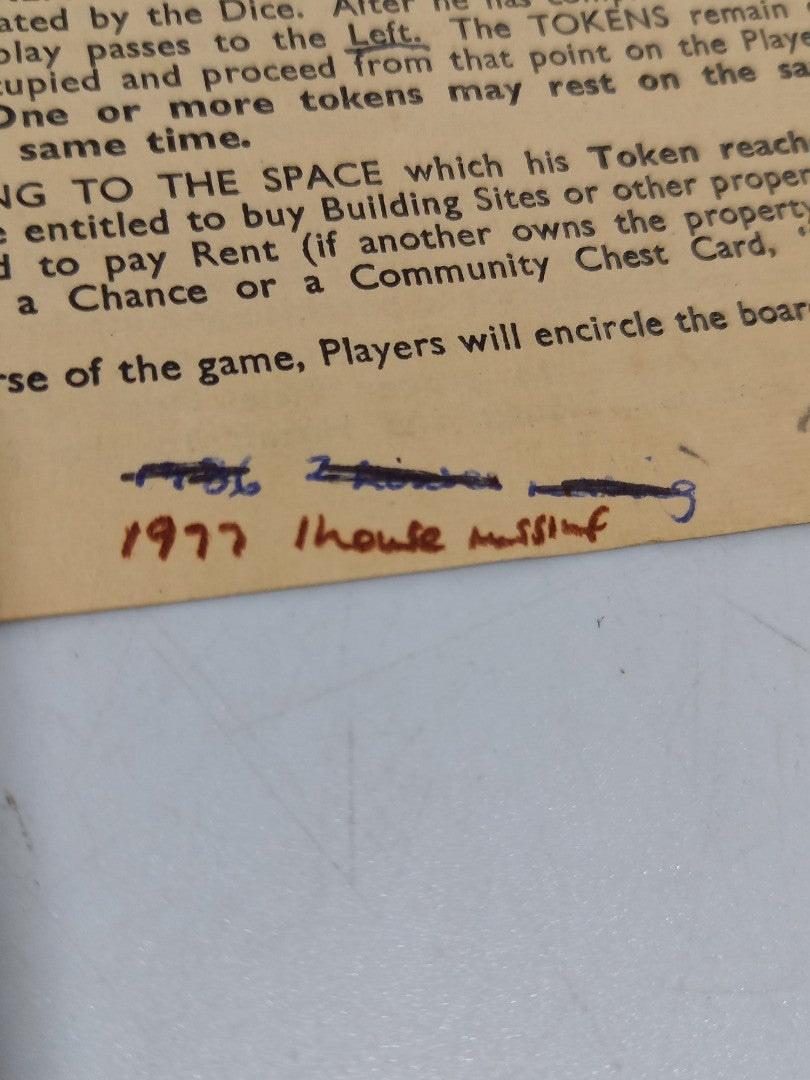 ated by the Dice. After he has
play passes to the Left. The TOKENS remain
cupied and proceed from that point on the Playe
One or more tokens may rest on the sa
same time.
NG TO THE SPACE which his Token reach
e entitled to buy Building Sites or other proper
d to pay Rent (if another owns the property
a Chance or a Community Chest Card, "
rse of the game, Players will encircle the boar
1977 1 house